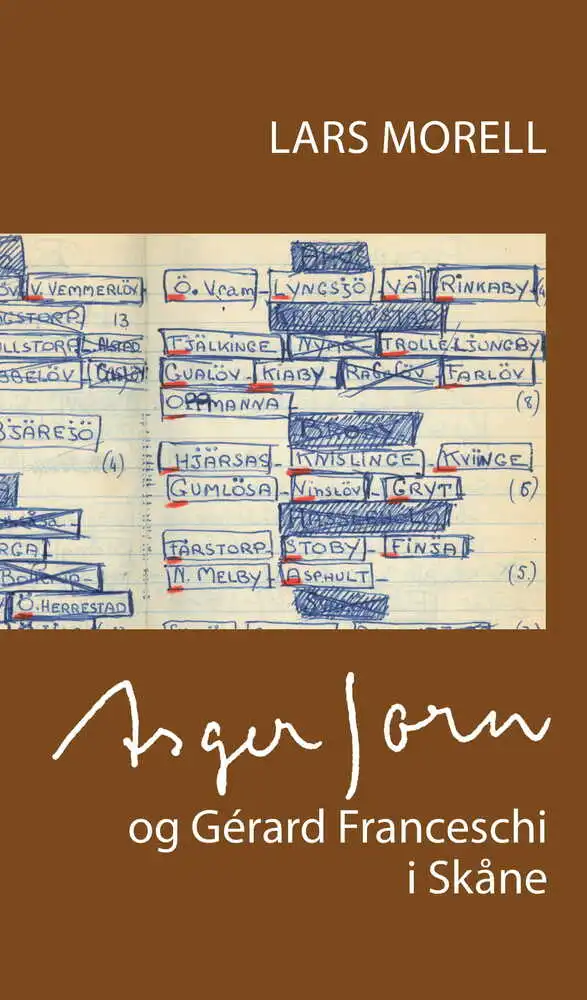 LARS MORELL
V. VEMMERLÖV
13
LLSTORP
BBELÖV
BJÄRESJÖ
(4)
RGA
Ö. HERRESTAD
Ö. Vram - LYNGSJÖ VÄ RINKABY
FJÄLKINGE TROLLE-LJUNGBY
GUALÖV - KIABY - RAGELÖV FÄRLÖV
OPPMANNA (8)
HJÄRSAS - KNISLINGE - KVIINGE
GUMLÖSA - Vinslöv - GRYT (6)
FÄRSTORP - STOBY - FINJA
N. MELBY - ASPHULT - (5.)
Asger Jorn
og Gérard Franceschi
i Skåne